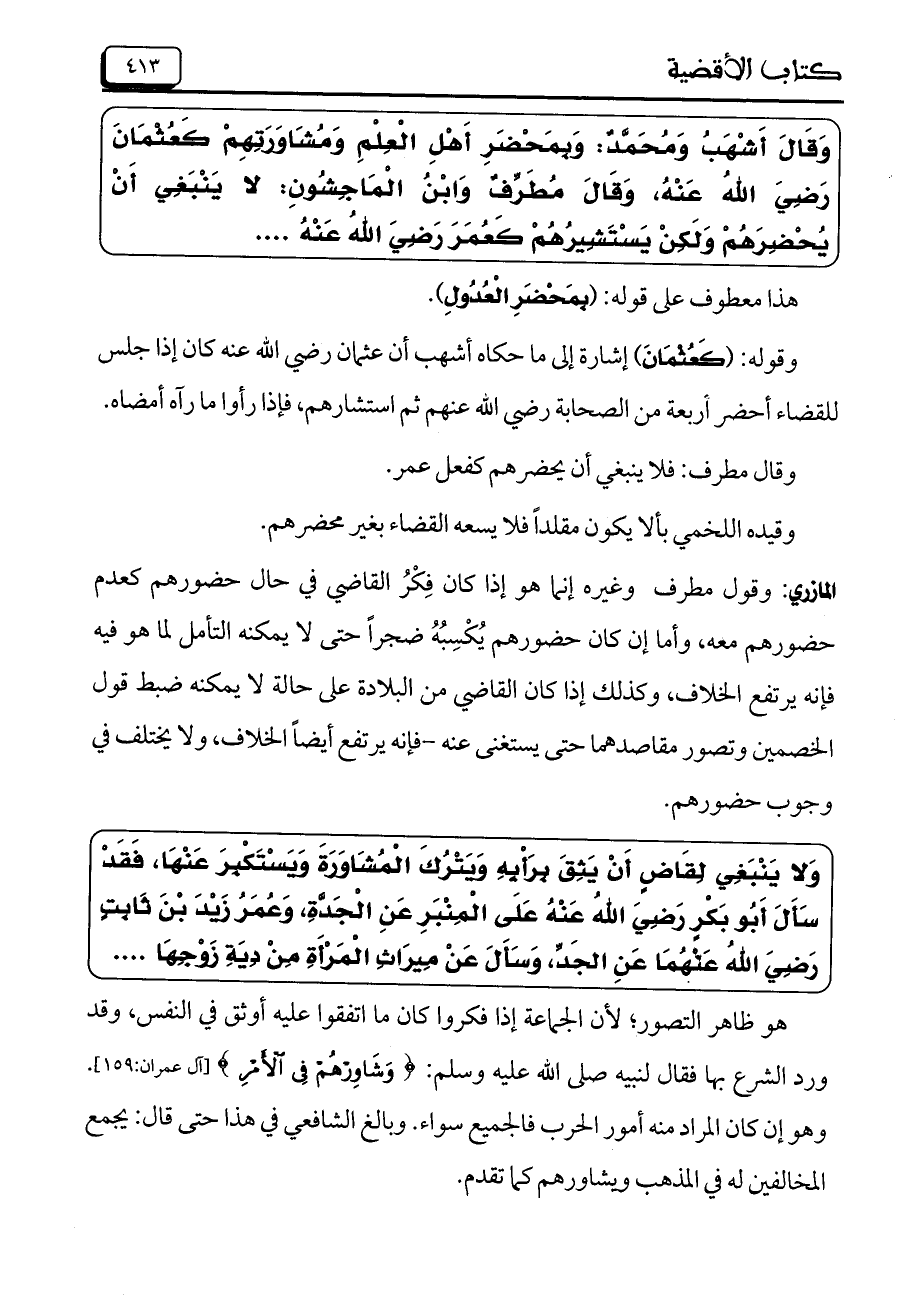 كتاب الأقضية
٤١٣
وَقَالَ أَشْهَبُ وَمُحَمَّدٌ: وَبِمَحْضَرِ أَهْلِ الْعِلْمِ وَمُشَاوَرَتِهِمْ كَعُثْمَانَ
رَضِيَ اللهُ عَنْهُ، وَقَالَ مُطَرِّفٌ وَابْنُ الْمَاجِشُونِ: لا يَنْبَغِي أَنْ
يُحْضِرَهُمْ وَلَكِنْ يَسْتَشِيرُهُمْ كَعُمَرَ رَضِيَ اللهُ عَنْهُ ....
هذا معطوف على قوله: (بِمَحْضَرِ الْعُدُولِ).
وقوله: (كَعُثْمَانَ) إشارة إلى ما حكاه أشهب أن عثمان رضي الله عنه كان إذا جلس
للقضاء أحضر أربعة من الصحابة رضي الله عنهم ثم استشارهم، فإذا رأوا ما رآه أمضاه.
وقال مطرف: فلا ينبغي أن يحضرهم كفعل عمر.
وقيده اللخمي بألا يكون مقلداً فلا يسعه القضاء بغير محضرهم.
المازري: وقول مطرف وغيره إنما هو إذا كان فِكْرُ القاضي في حال حضورهم كعدم
حضورهم معه، وأما إن كان حضورهم يُكْسِبُهُ ضجراً حتى لا يمكنه التأمل لما هو فيه
فإنه يرتفع الخلاف، وكذلك إذا كان القاضي من البلادة على حالة لا يمكنه ضبط قول
الخصمين وتصور مقاصدهما حتى يستغنى عنه -فإنه يرتفع أيضاً الخلاف، ولا يختلف في
وجوب حضورهم.
وَلا يَنْبَغِي لِقَاضٍ أَنْ يَثِقَ بِرَأْيِهِ وَيَتْرُكَ الْمُشَاوَرَةَ وَيَسْتَكْبِرَ عَنْهَا، فَقَدْ
سَأَلَ أَبُو بَكْرٍ رَضِيَ اللهُ عَنْهُ عَلَى الْمِنْبَرِ عَنِ الْجَدَّةِ، وَعُمَرُ زَيْدَ بْنَ ثَابِتٍ
رَضِيَ اللهُ عَنْهُمَا عَنِ الْجَدِّ، وَسَأَلَ عَنْ مِيرَاثِ الْمَرْأَةِ مِنْ دِيَةِ زَوْجِهَا ....
هو ظاهر التصور؛ لأن الجماعة إذا فكروا كان ما اتفقوا عليه أوثق في النفس، وقد
ورد الشرع بها فقال لنبيه صلى الله عليه وسلم: ﴿ وَشَاوِرْهُمْ فِي ٱلْأَمْرِ ﴾ [آل عمران:١٥٩].
وهو إن كان المراد منه أمور الحرب فالجميع سواء. وبالغ الشافعي في هذا حتى قال: يجمع
المخالفين له في المذهب ويشاورهم كما تقدم.